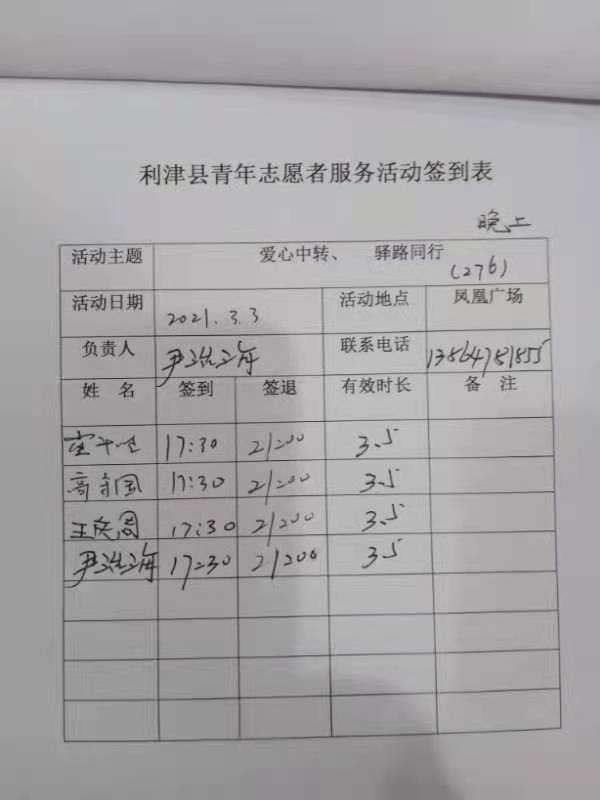 利津县青年志愿者服务活动签到表
晚上
活动主题 爱心中转、 驿路同行
(276)
活动日期 2021.3.3 活动地点 凤凰广场
负责人 尹洪海 联系电话
姓 名 签到 签退 有效时长 备 注
17:30 21:00 3.5
高守国 17:30 21:00 3.5
王庆周 17:30 21:00 3.5
尹洪海 17:30 21:00 3.5